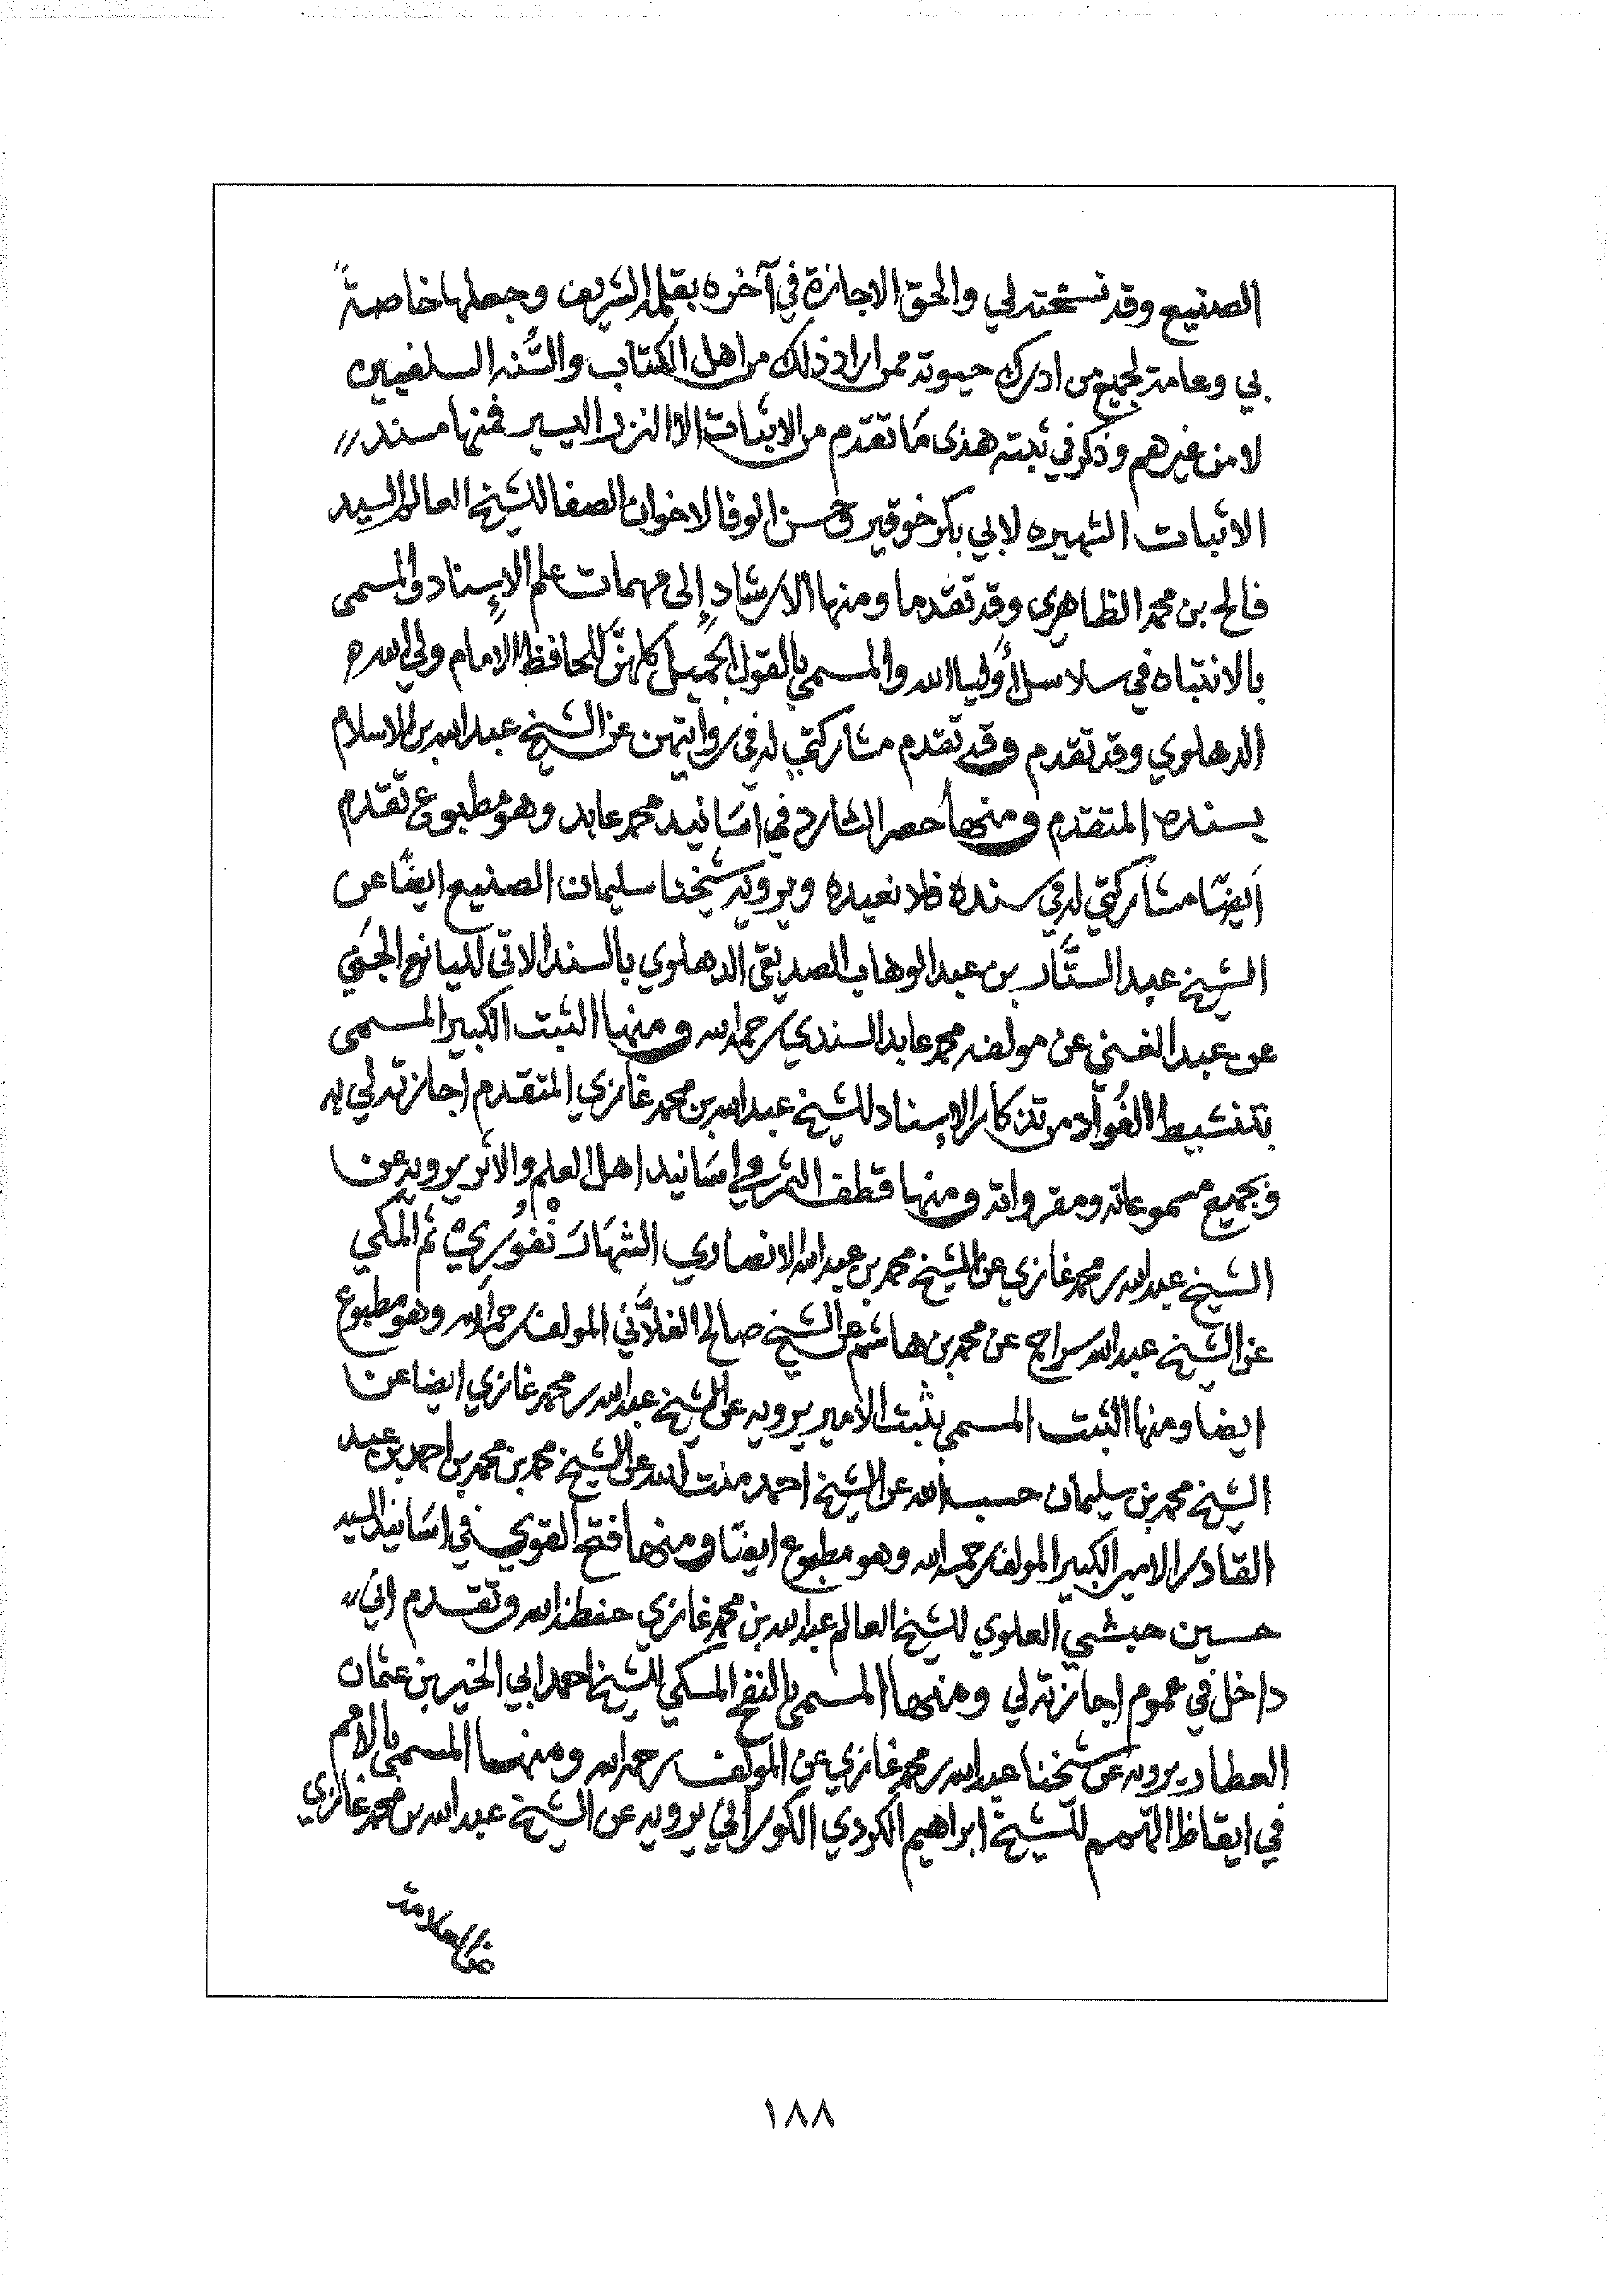 الصنيع وقد نسخته لي والحق الاجازة في آخره بقلمه الشريف وجعلها خاصةً
بي وعامة لجميع من ادرك حيوته ممن اراد ذلك من اهل الكتاب والسُّنه السلفيين
لا من غيرهم وذكر في ثبته هذى مَا تقدم من الاثبات الا النزر اليسير فمنها مسند
الاثبات الشهيره لابي بكر خوقير وحسن الوفا لاخوان الصفا للشيخ العالم السيد
فالح بن محمد الظاهرى وقد تقدما ومنها الارشاد إلى مهمات علم الإسناد والمسمى
بالانتباه في سلاسل أوليا الله والمسمى بالقول الجميل كلهنَّ للحافظ الامام ولي الله
الدهلوي وقد تقدم وقد تقدم مشاركتي له في روايتهن عن الشيخ عبد الله بن الاسلام
بسنده المتقدم ومنها حصر الشارد في اسَانيد محمد عابد وهو مطبوع تقدم
اَيضًا مشاركتي له في سنده فلا نعيده ويرويه شيخنا سليمان الصنيع ايضًا عن
الشيخ عبد الستَّار بن عبد الوهاب الصديقي الدهلوي بالسند الاتى لليانع الجني
عن عبد الغني عن مولفه محمد عابد السندي رحمه الله ومنها الثبت الكبير المسمى
بتنشيط الفُوآد من تذكار الإسناد للشيخ عبد الله بن محمد غازي المتقدم اجازته لي به
وبجميع مسموعاته ومقرواته ومنها قطف الثمر في اسَانيد اهل العلم والاثر يرويه عن
الشيخ عبد الله بر محمد غازي عن الشيخ محمد بن عبد الله الانصاري الشهَارَنْفُورِيْ ثم المكي
عن الشيخ عبد الله سراج عن محمد بن هاشم عن الشيخ صالح الفلاَّني المولف رحمه الله وهو مطبوع
ايضا ومنها الثبت المسمى بثبت الامير يرويه عن الشيخ عبد الله بر محمد غازي ايضا عن
الشيخ محمد بن سليمان حسب الله عن الشيخ احمد منت الله عن الشيخ محمد بن محمد بن احمد بن عبد
القادر الامير الكبير المولف رحمه الله وهو مطبوع ايضًا ومنها فتح القوي في اسَانيد السيد
حسين حبشي العلوي للشيخ العالم عبد الله بن محمد غازي حفظه الله وتقدم اني
داخل في عموم اجازته لي ومنها المسمى بالنفح المسكي للشيخ احمد ابي الخير بن عثمان
العطار يرويه عن شيخنا عبد الله بر محمد غازي عن المولف رحمه الله ومنها المسمى بالامم
في ايقاظ الهمم للشيخ ابراهيم الكردي الكوراني يرويه عن الشيخ عبد الله بن محمد غازي
١٨٨